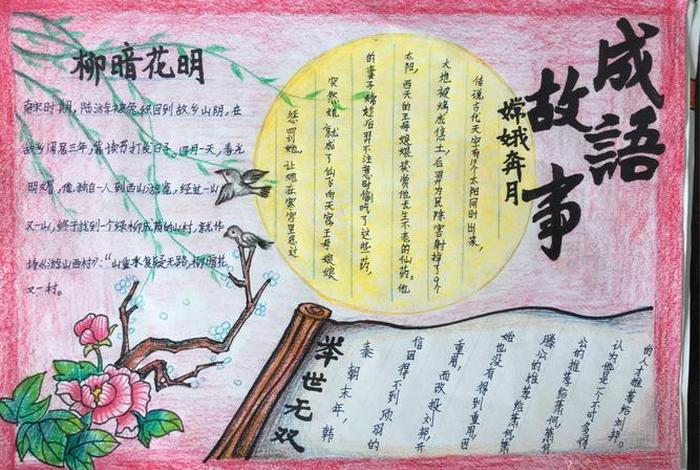 成語
故事
柳暗花明
南宋时期，陆游被免职回到故乡山阴，在
故乡闲居三年，靠读书打发日子。四月一天，春光
明媚，他独自一人到西山游览，经过一山
又一山，终于找到一个绿柳成荫的山村，就作
诗《游山西村》："山重水复疑无路，柳暗花
又一村。
嫦娥奔月
传说古代天空有10个太阳同时出来，
大地被烤成焦土，后羿为民除害射掉了9个
太阳，西天的王母娘娘奖赏他长生不老的仙药。他
的妻子嫦娥趁后羿不注意时偷吃了这些药，
突然她就成了仙飞向天宫，王母娘娘
惩罚她，让她在寒宫里思过
举世无双
秦朝末年，韩
信因得不到项羽的
重用，而改投刘邦，开
始也没有得到重用，因
滕公的推荐给萧何，萧何
认为他是一个不可多得
的人才推荐给刘邦。